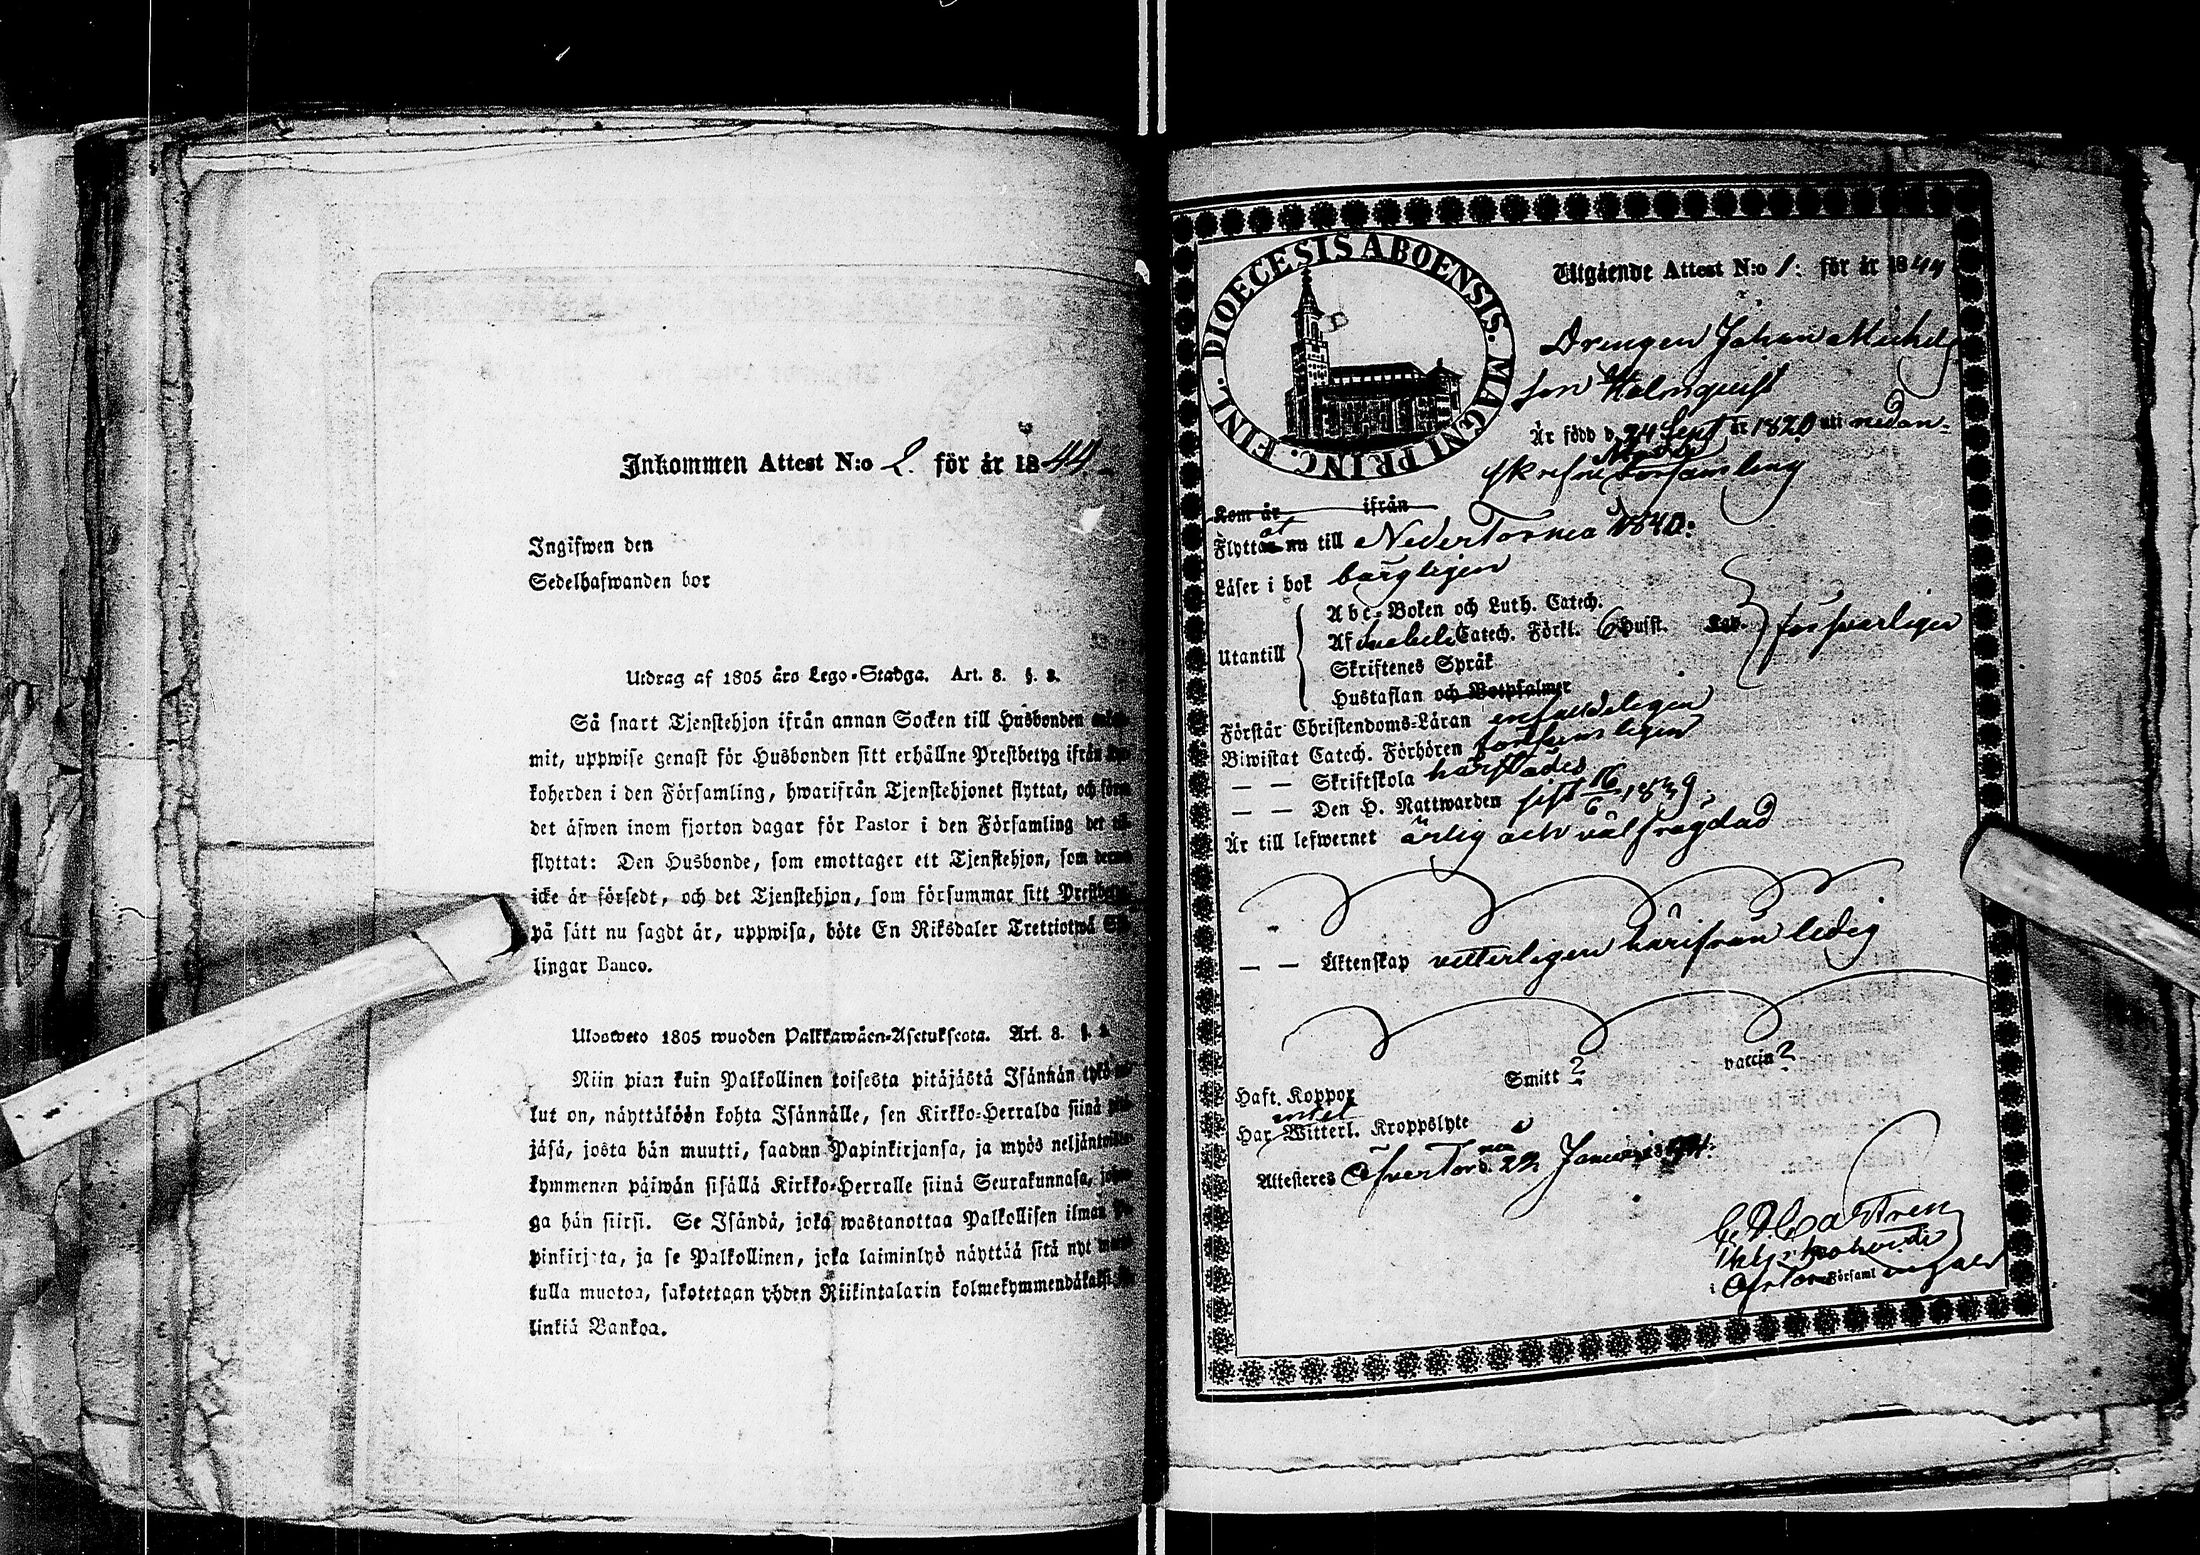 Inkommen Attest N:o 2. för år 1844
Ingifwen den
Sedelhafwanden bor
Utdrag af 1805 års Lego-Stadga. Art. 8. §. 2.
Så snart Tjenstehjon ifrån annan Socken till Husbonden
mit, uppwise genast för Husbonden sitt erhållne Prestbetyg ifrån
koherden i den Församling, hwarifrån Tjenstehjonet flyttat, och
det äfwen inom fjorton dagar för Pastor i den Församling det
flyttat: Den Husbonde, som emottager ett Tjenstehjon, som
icke är försedt, och det Tjenstehjon, som försummar sitt
på sätt nu sagdt är, uppwisa, böte En Riksdaler Trettiotwå
lingar Banco.
Ulosweto 1805 wuoden Palkkawäen-Asetuksesta. Art. 8. §.
Niin pian kuin Palkollinen toisesta pitäjästä Isännän
lut on, näyttäköön kohta Isännälle, sen Kirkko-Herralda siinä
jäsä, josta hän muutti, saadun Papinkirjansa, ja myös
kymmenen päiwän sisällä Kirkko-Herralle siinä Seurakunnasa,
ga hän siirsi. Se Isändä, joka wastanottaa Palkollisen ilman
pinkirjata, ja se Palkollinen, joka laiminlyö näyttää sitä nyt
tulla muotoa, sakotetaan yhden Riikintalarin
linkiä Bankoa.
DIOECESIS ABOENSIS. MAGNI PRINC. FINL.
Utgående Attest N:o 1. för år 1844
Drengen Johan Michels
son Holmquist
Är född d. 24 Sept. år 1820 uti nedan-
skrefne Församling
Kom år ifrån
Flyttat nu till Nedertornea 1840.
Läser i bok bärgligen
Utantill
Abc-Boken och Luth. Catech.
Af Catech. Förkl. Husst. försvarligen
Skriftenes Språk
Hustaflan och Botpsalmer
Förstår Christendoms-Läran enfaldeligen
Biwistat Catech. Förhören
— — Skriftskola härstädes
— — Den H. Nattwarden sist 16/6 1839.
Är till lefwernet ärlig och välfrägdad
— — Äktenskap vetterligen härifrån ledig
Haft. Koppor Smitt ? vaccin ?
intet
Har Witterl. Kroppslyte
Attesteres Öfver Torneå d. 22 Januari 1844.
Castren
Kyrkoherde
i Församl